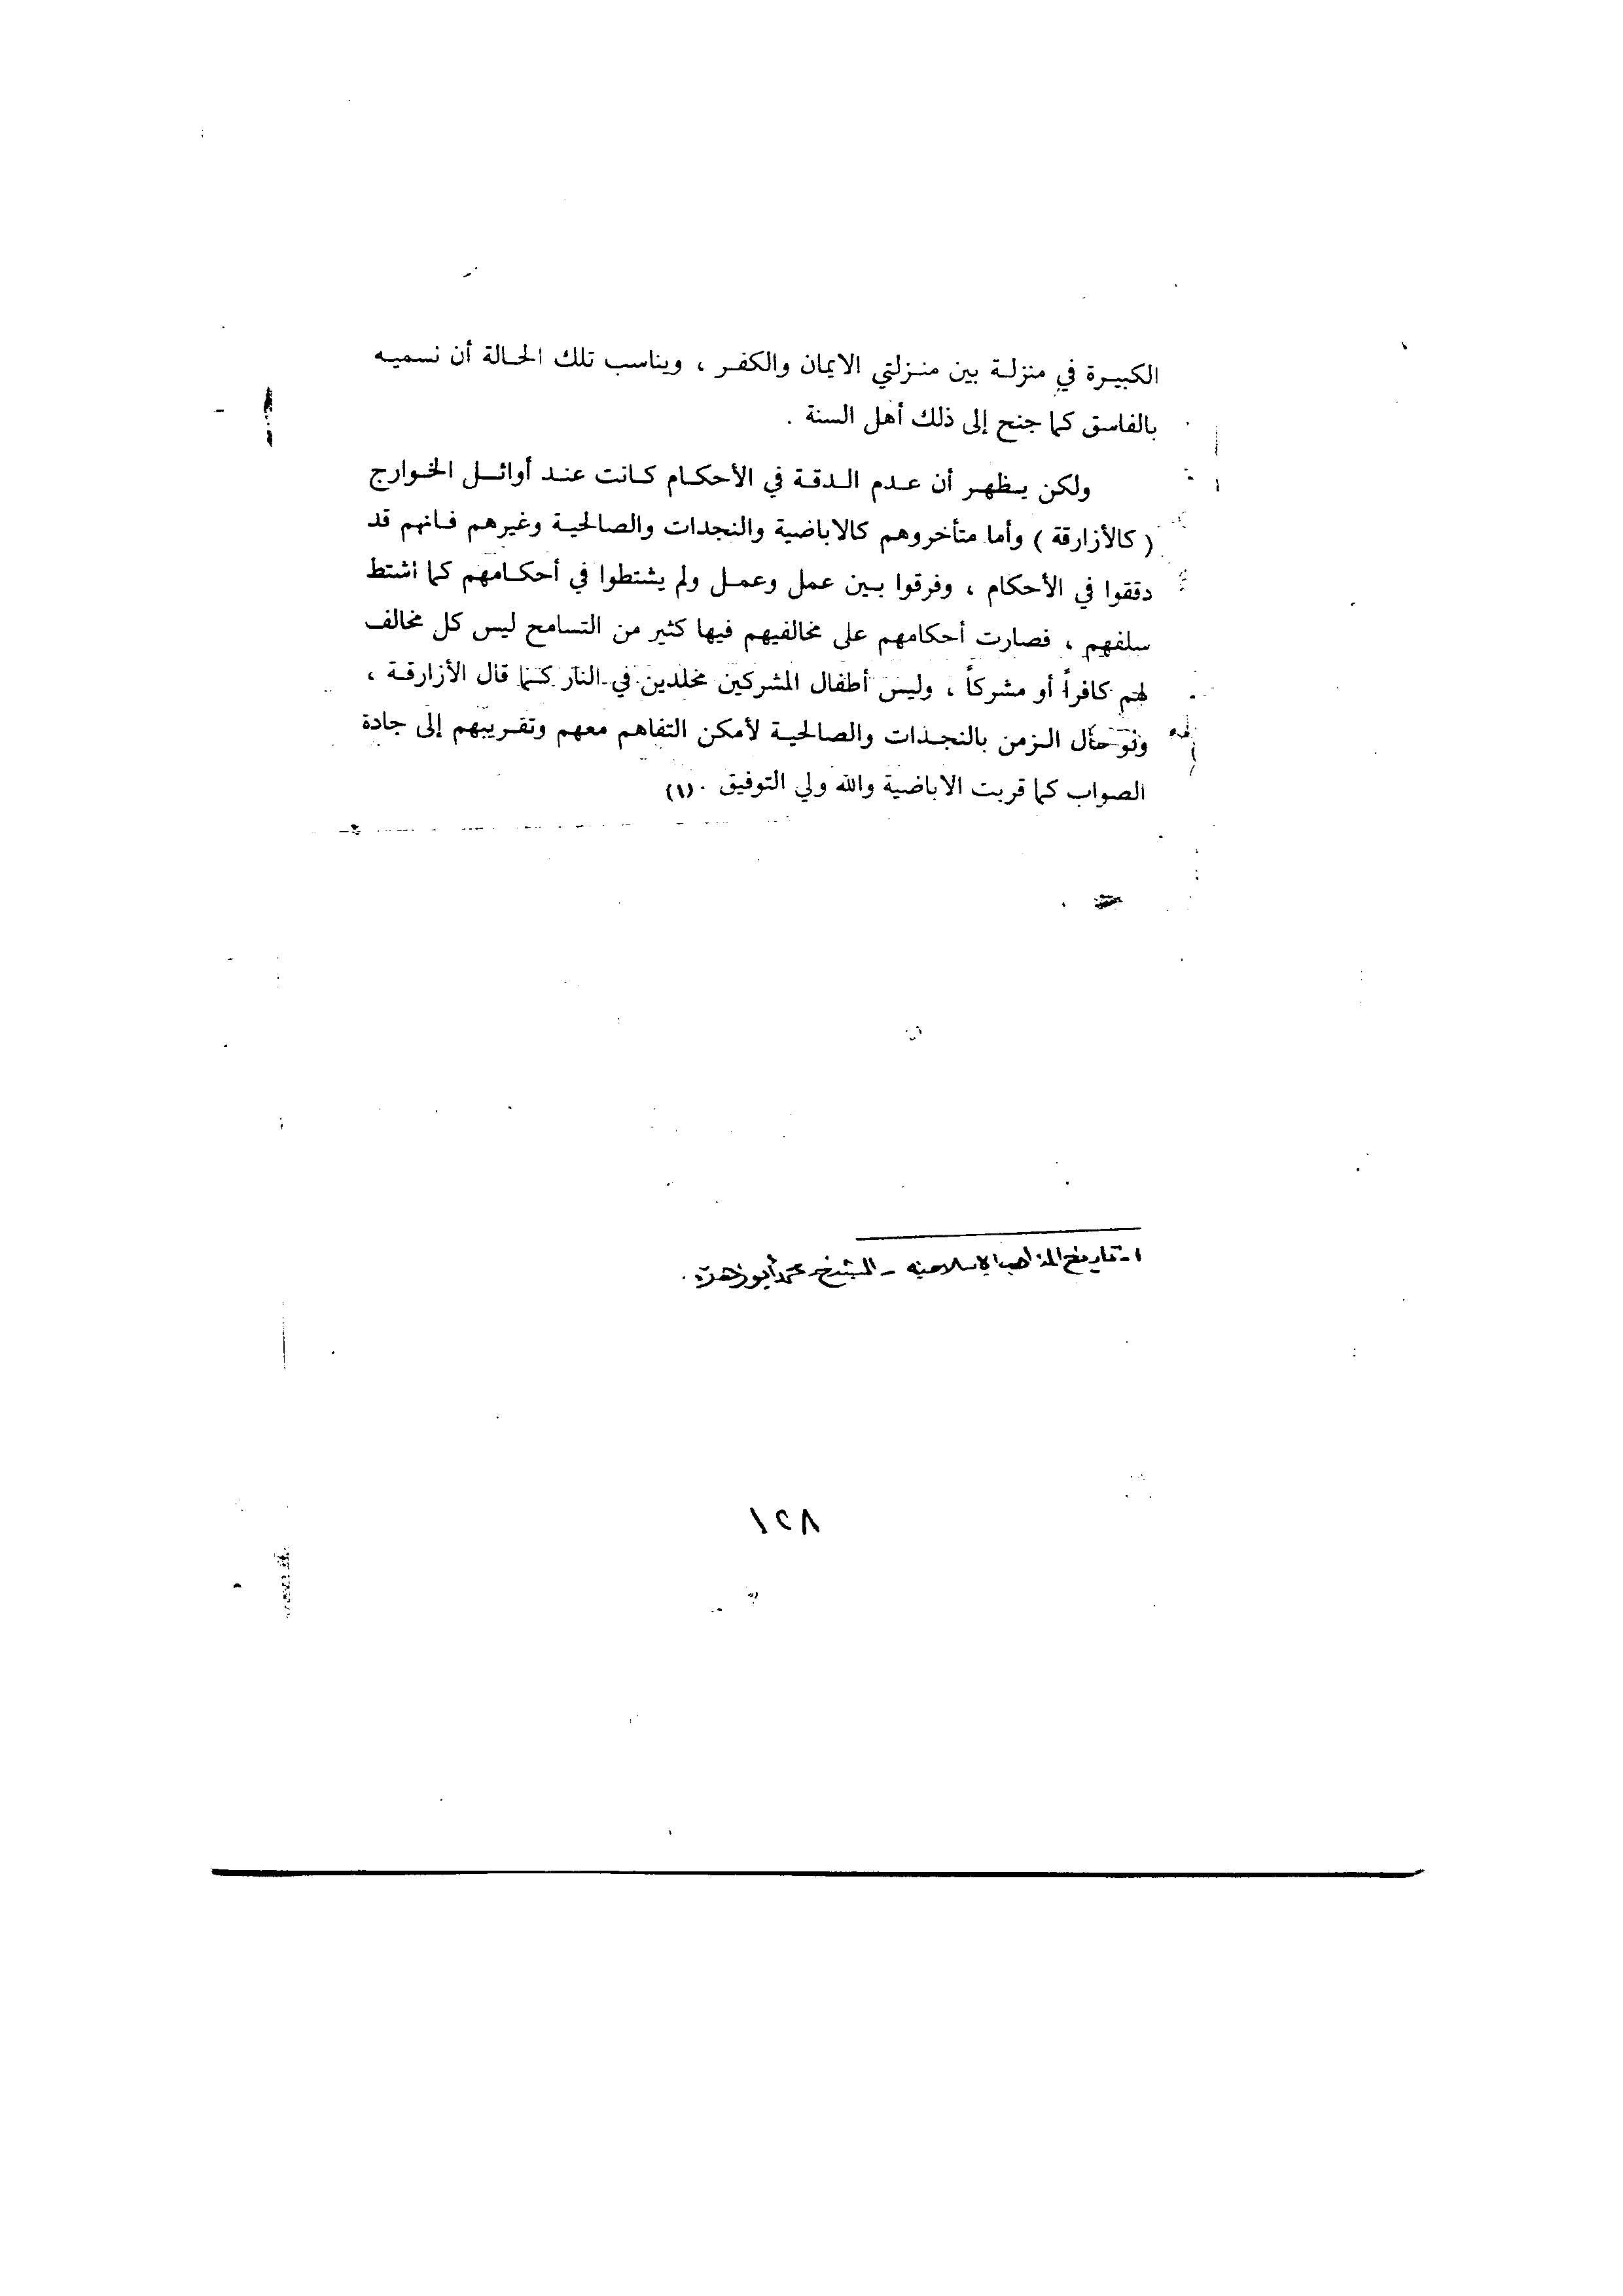 الكبيرة في منزلة بين منزلتي الايمان والكفر ، ويناسب تلك الحالة أن نسميه
بالفاسق كما جنح إلى ذلك أهل السنة .
ولكن يظهر أن عدم الدقة في الأحكام كانت عند أوائل الخوارج
( كالأزارقة ) وأما متأخروهم كالاباضية والنجدات والصالحية وغيرهم فانهم قد
دققوا في الأحكام ، وفرقوا بين عمل وعمل ولم يشتطوا في أحكامهم كما اشتط
سلفهم ، فصارت أحكامهم على مخالفيهم فيها كثير من التسامح ليس كل مخالف
لهم كافراً أو مشركاً ، وليس أطفال المشركين مخلدين في النار كما قال الأزارقة ،
ولو طال الزمن بالنجدات والصالحية لأمكن التفاهم معهم وتقريبهم إلى جادة
الصواب كما قربت الاباضية والله ولي التوفيق . (١)
١ - تاريخ المذاهب الإسلامية - الشيخ محمد أبو زهرة .
١٢٨